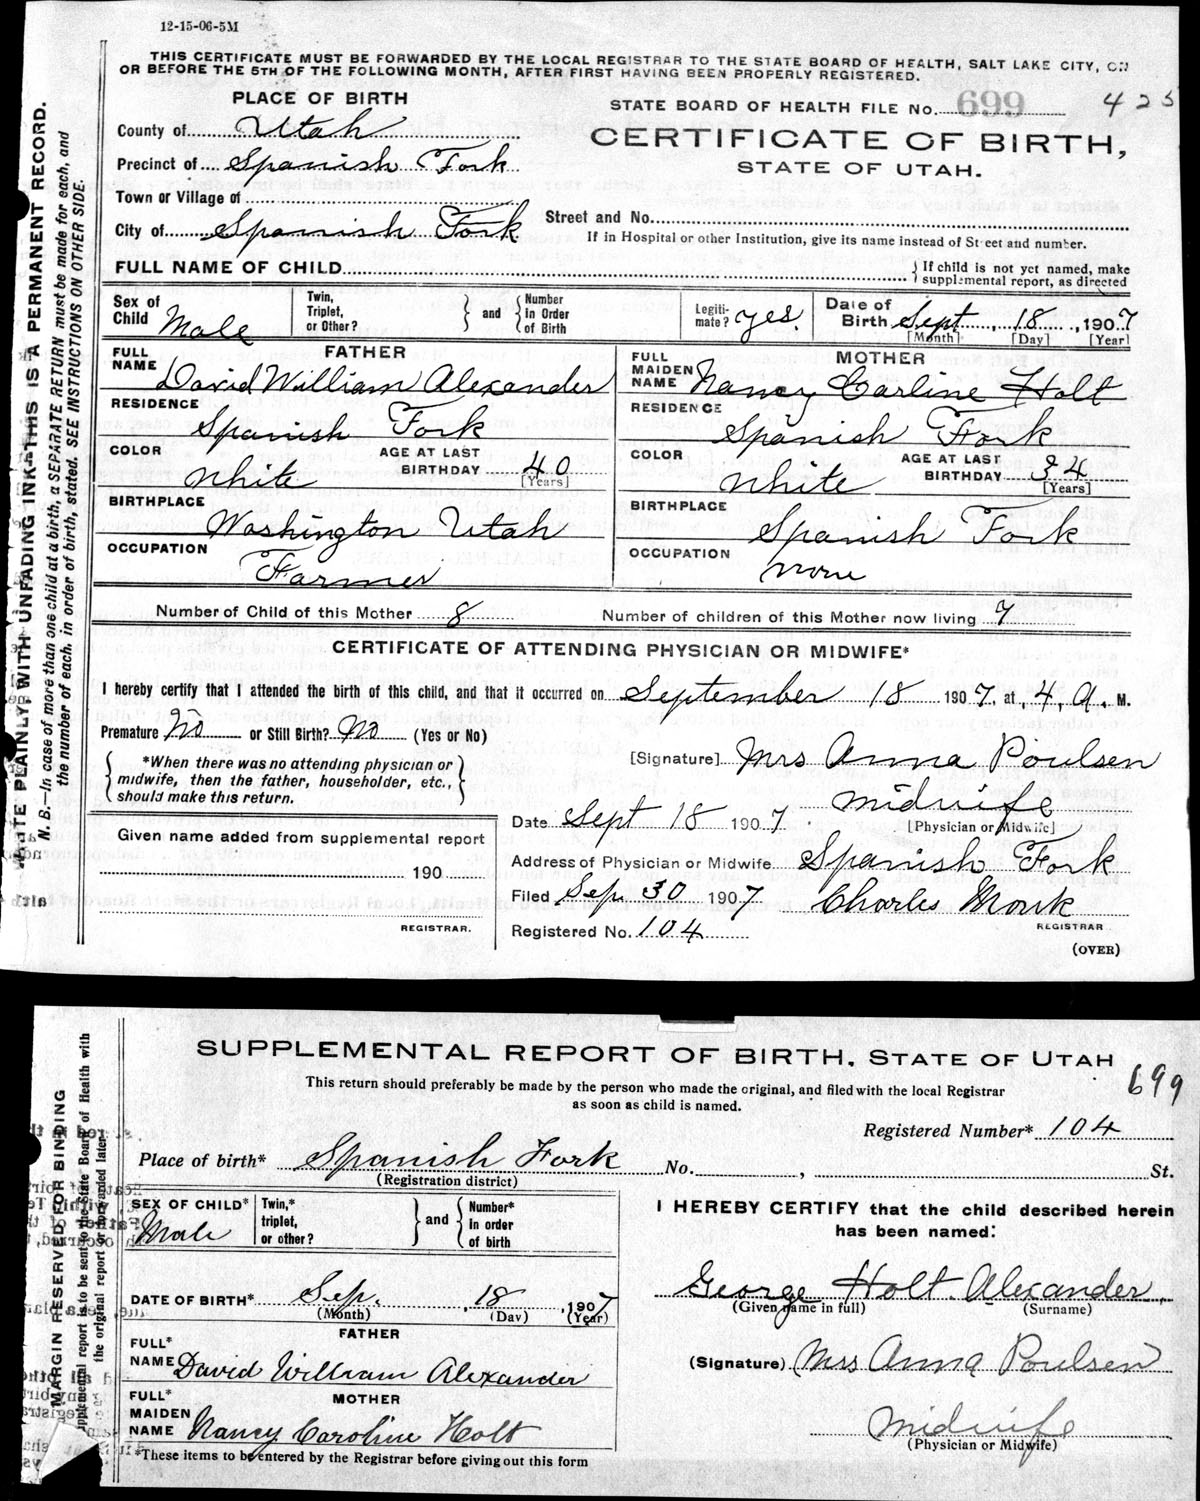 12-15-06-5M
THIS CERTIFICATE MUST BE FORWARDED BY THE LOCAL REGISTRAR TO THE STATE BOARD OF HEALTH, SALT LAKE CITY, ON
OR BEFORE THE 5TH OF THE FOLLOWING MONTH, AFTER FIRST HAVING BEEN PROPERLY REGISTERED.
PLACE OF BIRTH
STATE BOARD OF HEALTH FILE No. 699 425
County of Utah
CERTIFICATE OF BIRTH,
Precinct of Spanish Fork
STATE OF UTAH.
Town or Village of
Street and No.
City of Spanish Fork
If in Hospital or other Institution, give its name instead of Street and number.
FULL NAME OF CHILD
If child is not yet named, make
supplemental report, as directed
Sex of Child Male
Twin, Triplet, or Other? and Number in Order of Birth
Legiti-mate? yes.
Date of Birth Sept. 18, 1907
[Month] [Day] [Year]
FATHER
FULL NAME David William Alexander
RESIDENCE Spanish Fork
COLOR White
AGE AT LAST BIRTHDAY 40
[Years]
BIRTHPLACE Washington Utah
OCCUPATION Farmer
MOTHER
FULL MAIDEN NAME Nancy Carline Holt
RESIDENCE Spanish Fork
COLOR White
AGE AT LAST BIRTHDAY 34
[Years]
BIRTHPLACE Spanish Fork
OCCUPATION none
Number of Child of this Mother 8 Number of children of this Mother now living 7
CERTIFICATE OF ATTENDING PHYSICIAN OR MIDWIFE*
I hereby certify that I attended the birth of this child, and that it occurred on September 18 1907, at 4, A. M.
Premature No or Still Birth? No (Yes or No)
*When there was no attending physician or
midwife, then the father, householder, etc.,
should make this return.
[Signature] Mrs Anna Poulsen
midwife
[Physician or Midwife]
Date Sept 18 1907
Address of Physician or Midwife Spanish Fork
Filed Sep. 30 1907 Charles Monk
REGISTRAR
Registered No. 104
(OVER)
Given name added from supplemental report
190
REGISTRAR.
WRITE PLAINLY WITH UNFADING INK—THIS IS A PERMANENT RECORD.
N. B.—In case of more than one child at a birth, a SEPARATE RETURN must be made for each, and
the number of each, in order of birth, stated. SEE INSTRUCTIONS ON OTHER SIDE.
SUPPLEMENTAL REPORT OF BIRTH, STATE OF UTAH
699
This return should preferably be made by the person who made the original, and filed with the local Registrar
as soon as child is named.
Registered Number* 104
Place of birth* Spanish Fork No. , St.
(Registration district)
SEX OF CHILD* Male
Twin,* triplet, or other? and Number* in order of birth
DATE OF BIRTH* Sep. 18, 1907
(Month) (Day) (Year)
FATHER
FULL* NAME David William Alexander
MOTHER
FULL* MAIDEN NAME Nancy Caroline Holt
*These items to be entered by the Registrar before giving out this form
I HEREBY CERTIFY that the child described herein
has been named:
George Holt Alexander,
(Given name in full) (Surname)
(Signature) Mrs Anna Poulsen
Midwife
(Physician or Midwife)
MARGIN RESERVED FOR BINDING
supplemental report is to be sent to the State Board of Health with
the original report or forwarded later